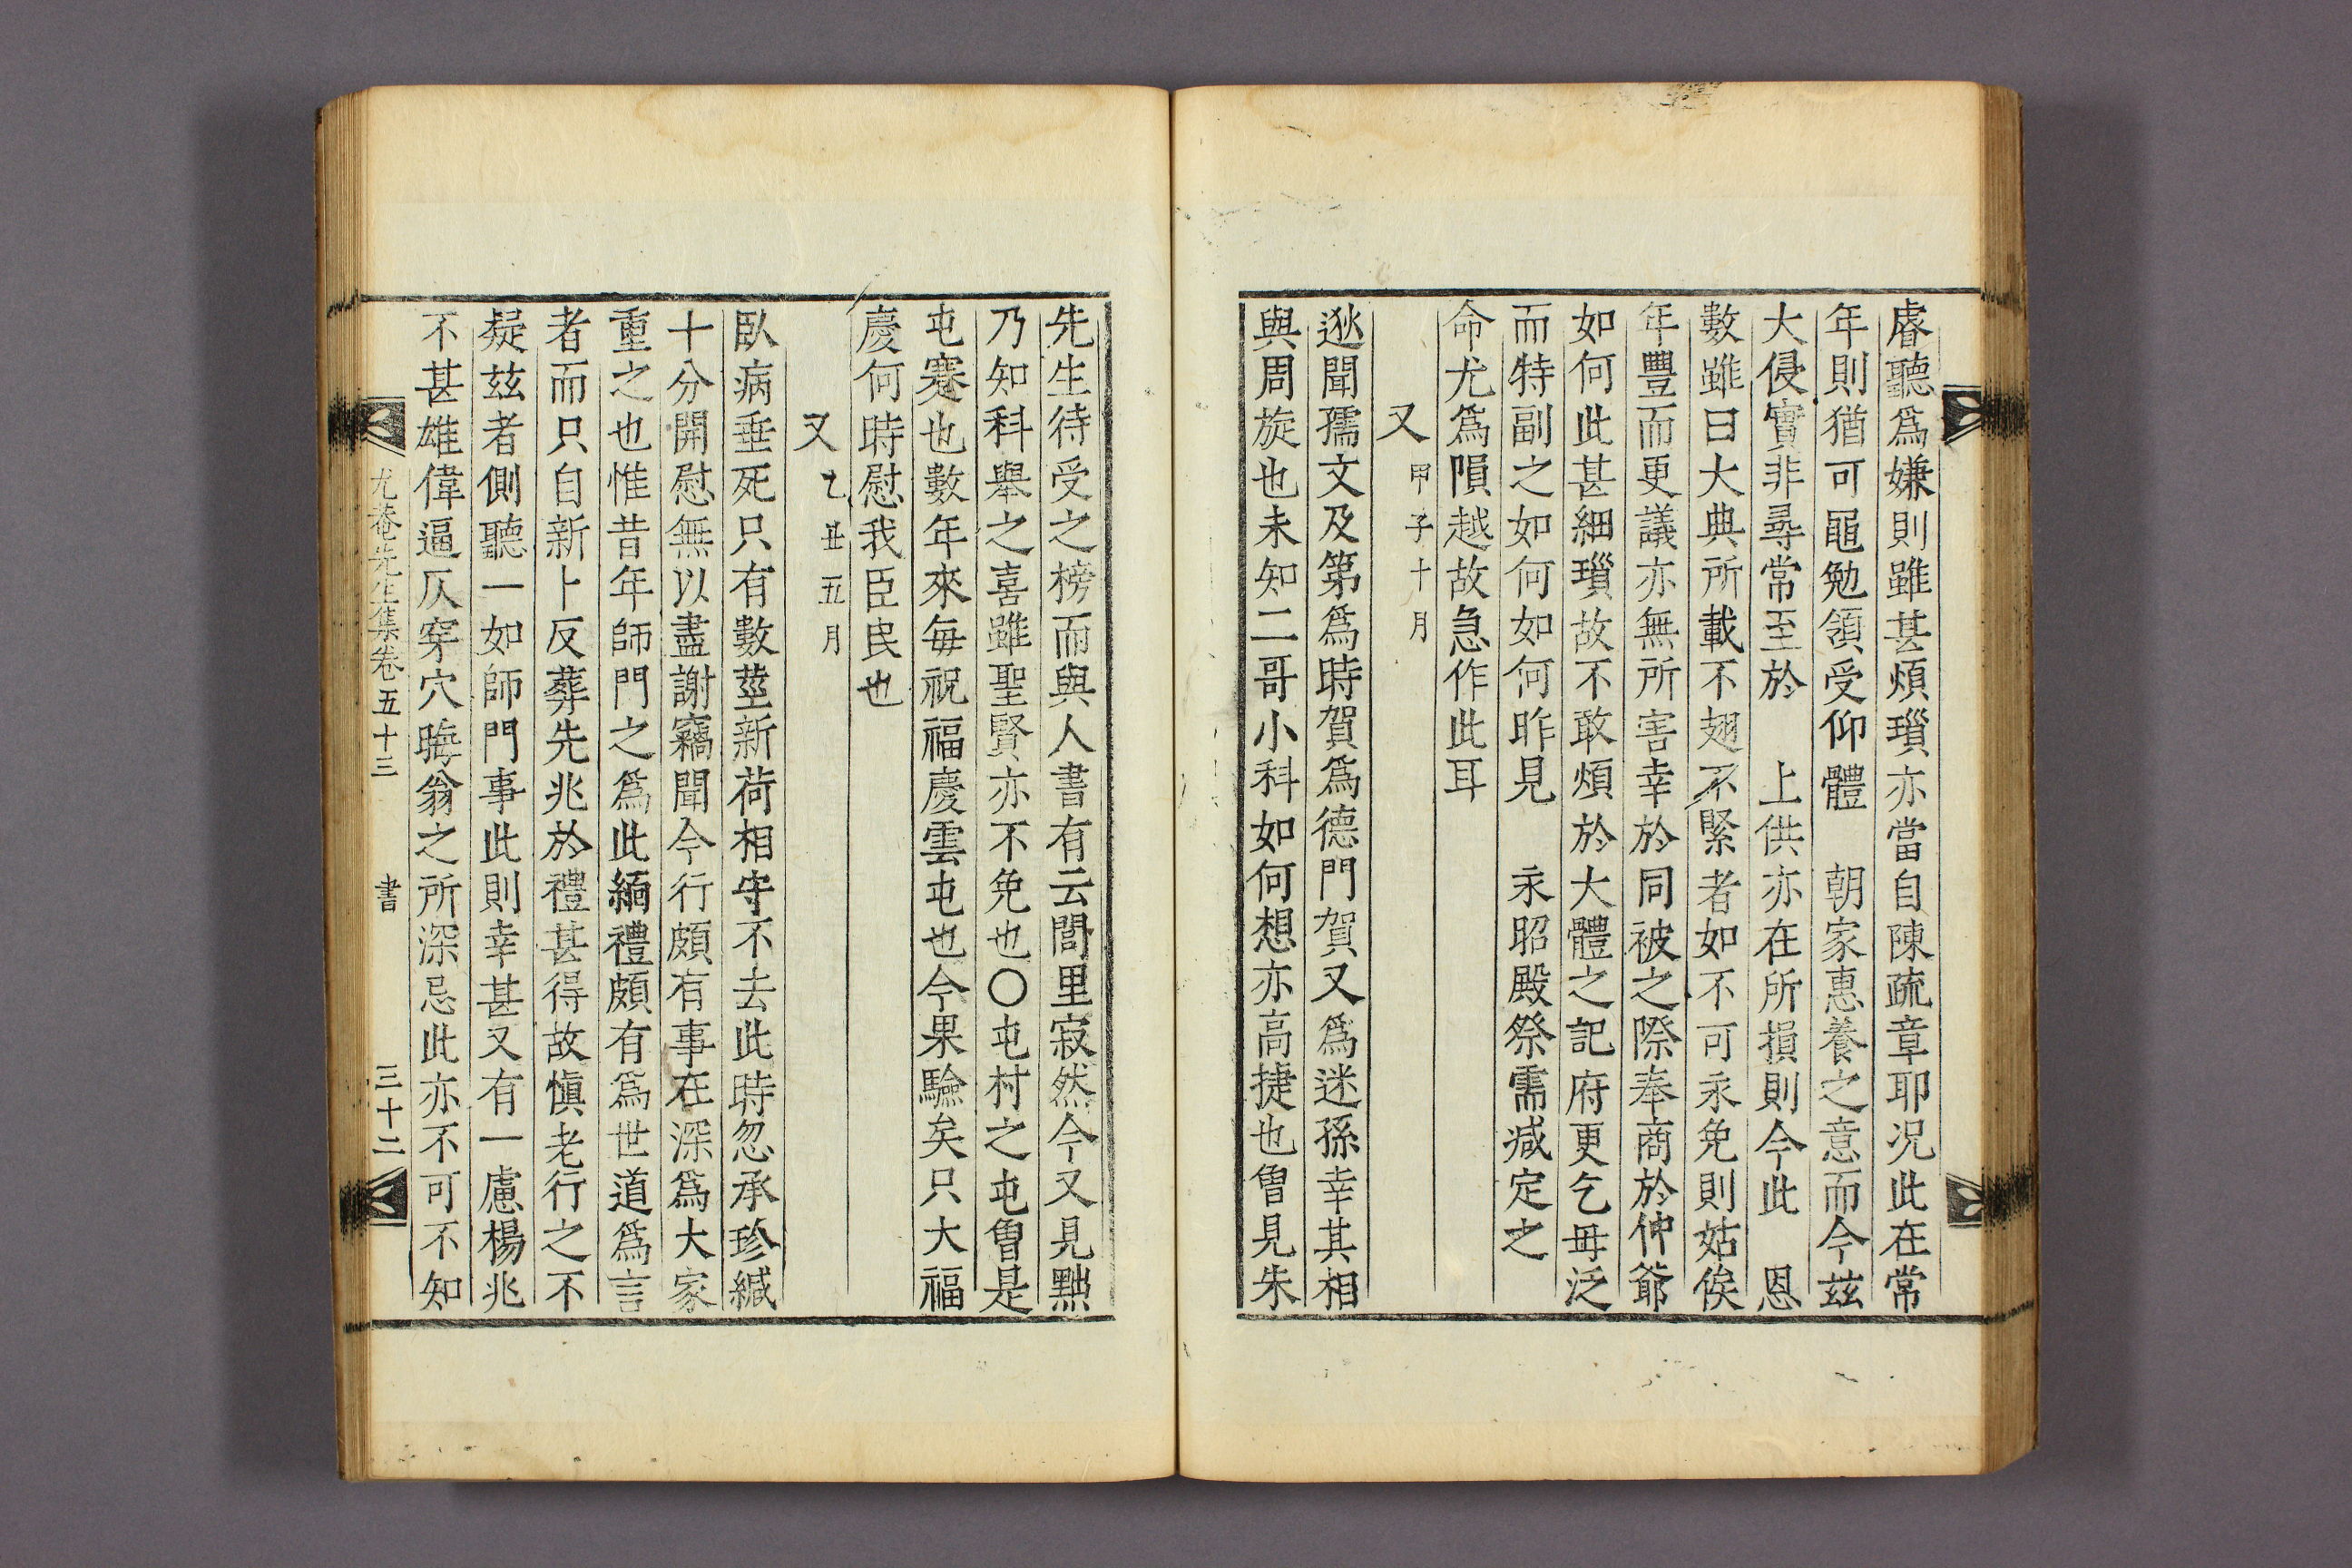 睿聽爲嫌則雖甚煩瑣亦當自陳疏章耶况此在常
年則猶可黽勉領受仰體 朝家惠養之意而今玆
大侵實非尋常至於 上供亦在所損則今此 恩
數雖曰大典所載不翅不緊者如不可永免則姑俟
年豐而更議亦無所害幸於同被之際奉商於仲爺
如何此甚細瑣故不敢煩於大體之記府更乞毋泛
而特副之如何如何昨見 永昭殿祭需减定之
命尤爲隕越故急作此耳
又 甲子十月
逖聞孺文及第爲時賀爲德門賀又爲迷孫幸其相
與周旋也未知二哥小科如何想亦高捷也曾見朱
先生待受之榜而與人書有云閭里寂然今又見黜
乃知科舉之喜雖聖賢亦不免也○屯村之屯曾是
屯蹇也數年來每祝福慶雲屯也今果驗矣只大福
慶何時慰我臣民也
又 乙丑五月
臥病垂死只有數莖新荷相守不去此時忽承珍緘
十分開慰無以盡謝竊聞今行頗有事在深爲大家
重之也惟昔年師門之爲此緬禮頗有爲世道爲言
者而只自新卜反葬先兆於禮甚得故愼老行之不
疑玆者側聽一如師門事此則幸甚又有一慮楊兆
不甚雄偉逼仄穿穴晦翁之所深忌此亦不可不知
尤菴先生集卷五十三 書 三十二